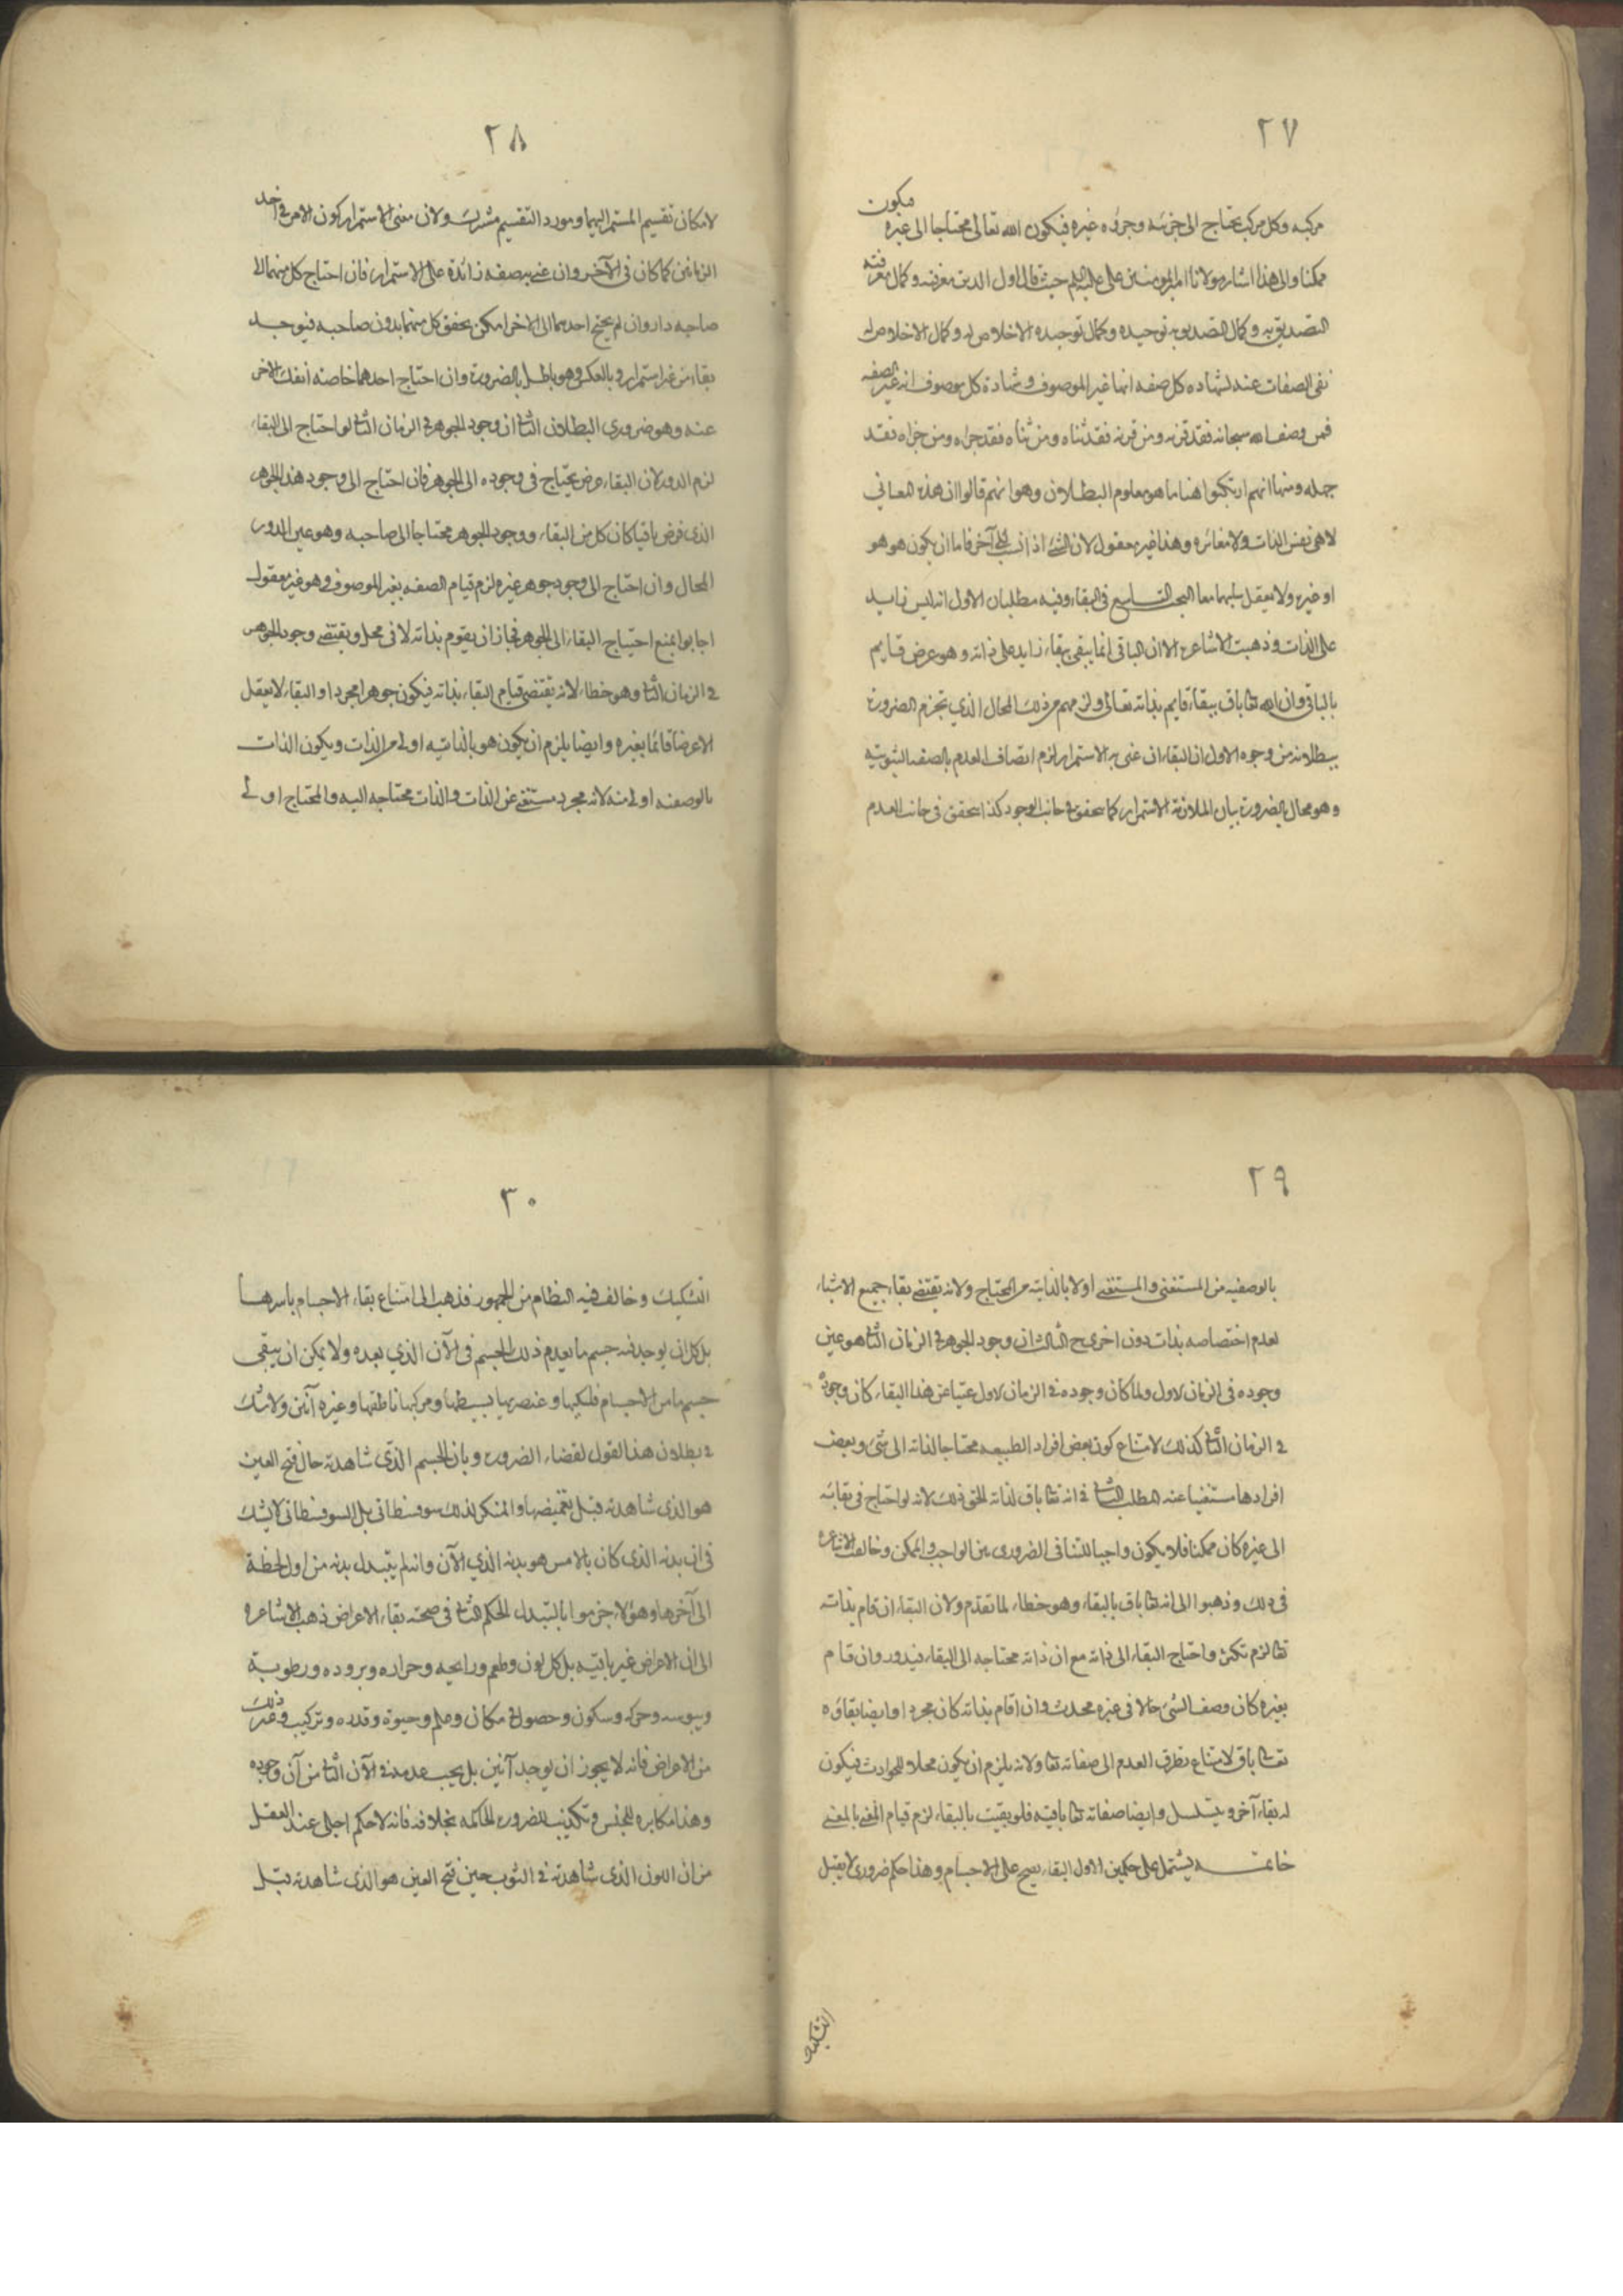 ٢٧
مركبه وكل مركب يحتاج الى جزئه وجزؤه غيره فيكون الله تعالى محتاجا الى غيره فيكون
ممكنا والى هذا اشار مولانا امير المومنين على عليه السلم حيث قال اول الدين معرفته وكمال معرفته
التصديق به وكمال التصديق به توحيده وكمال توحيده الاخلاص له وكمال الاخلاص له
نفى الصفات عنه لشهاده كل صفه انها غير الموصوف وشهادة كل موصوف انه غير الصفه
فمن وصف الله سبحانه فقد قرنه ومن قرنه فقد ثناه ومن ثناه فقد جزاه ومن جزاه فقد
جهله ومنها انهم ارتكبوا هنا ما هو معلوم البطلان وهو انهم قالوا ان هذه المعانى
لا هى نفس الذات ولا مغائره وهذا غير معقول لان الشئ اذا نسب الى آخر فاما ان يكون هو هو
او غيره ولا يعقل سلبهما معا البحث التاسع فى البقاء وفيه مطلبان الاول انه ليس زايد
على الذات وذهبت الاشاعره الا ان الباقى انما يبقى ببقاء زايد على ذاته وهو عرض قايم
بالباقى وان الله تعا باق ببقاء قايم بذاته تعالى ولزمهم من ذلك المحال الذي تجزم الضرورة
ببطلانه من وجوه الاول ان البقاء ان عنى به الاستمرار لزم اتصاف العدم بالصفه الثبوتيه
وهو محال بالضرورة بيان الملازمة الاستمرار كما يتحقق فى جانب الوجود كذا يتحقق فى جانب العدم
٢٨
لامكان تقسيم المستمر اليهما ومورد التقسيم مشترك ولان معنى الاستمرار كون الامر فى احد
الزمانين كما كان فى الآخر وان عنى به صفه زائدة على الاستمرار فان احتاج كل منهما الى
صاحبه دار وان لم يحتج احدهما الى الاخر امكن تحقق كل منهما بدون صاحبه فيوجد
بقاء من غير استمرار وبالعكس وهو باطل بالضرورة وان احتاج احدهما خاصه انفك الاخر
عنه وهو ضروري البطلان الثانى ان وجود الجوهر فى الزمان الثانى لو احتاج الى البقاء
لزم الدور لان البقاء عرض يحتاج فى وجوده الى الجوهر فان احتاج الى وجود هذا الجوهر
الذى فرض باقيا كان كل من البقاء ووجود الجوهر محتاجا الى صاحبه وهو عين الدور
المحال وان احتاج الى وجود جوهر غيره لزم قيام الصفه بغير الموصوف وهو غير معقول
اجابوا بمنع احتياج البقاء الى الجوهر فجاز ان يقوم بذاته لا فى محل ويقتضى وجود الجوهر
فى الزمان الثانى وهو خطاء لانه يقتضى قيام البقاء بذاته فيكون جوهرا مجردا والبقاء لا يعقل
الا عرضا قائما بغيره وايضا يلزم ان يكون هو بالذاتيه اولى من الذات ويكون الذات
بالوصفه اولى منه لانه مجرد مستغنى عن الذات والذات محتاجه اليه والمحتاج اولى
٢٩
بالوصفيه من المستغنى والمستغنى اولا بالذاتيه من المحتاج ولانه يقتضى بقاء جميع الاشياء
لعدم اختصاصه بذات دون اخرى ح الثالث ان وجود الجوهر فى الزمان الثانى هو عين
وجوده فى الزمان الاول ولما كان وجوده فى الزمان الاول غنيا عن هذا البقاء كان وجوده
فى الزمان الثانى كذلك لامتناع كون بعض افراد الطبيعه محتاجا لذاته الى شئ وبعض
افرادها مستغنيا عنه المطلب الثانى فى انه تعا باق لذاته الحق ذلك لانه لو احتاج فى بقائه
الى غيره كان ممكنا فلا يكون واجبا للتنافى الضرورى بين الواجب والممكن وخالفت الاشاعره
فى ذلك وذهبوا الى انه تعا باق بالبقاء وهو خطاء لما تقدم ولان البقاء ان قام بذاته
تعا لزم تكثره واحتاج البقاء الى ذاته مع ان ذاته محتاجه الى البقاء فيدور وان قام
بغيره كان وصف الشئ حالا فى غيره محدث وان اقام بذاته كان مجردا وايضا بقاؤه
تعا باق لامتناع تطرق العدم الى صفاته تعا ولانه يلزم ان يكون محلا للحوادث فيكون
له بقاء آخر ويتسلسل وايضا صفاته تعا باقيه فلو بقيت بالبقاء لزم قيام المعنى بالمعنى
خاتمـه يشتمل على حكمين الاول البقاء يصح على الاجسام وهذا حكم ضرورى لا يقبل
التشكيك
٣٠
التشكيك وخالف فيه النظام من الجمهور فذهب الى امتناع بقاء الاجسام باسرها
بل كل ان يوجد فيه جسم ما يعدم ذلك الجسم فى الآن الذي بعده ولا يمكن ان يبقى
جسم ما من الاجسام فلكيها وعنصريها بسيطها ومركبها ناطقها وغيره آنين ولا شك
فى بطلان هذا القول لقضاء الضرورة بان الجسم الذى شاهدته حال فتح العين
هو الذى شاهدته قبل تغميضها والمنكر لذلك سوفسطائى بل السوفسطائى لا يشك
فى ان بدنه الذى كان بالامس هو بدنه الذي الآن وانه لم يتبدل بدنه من اول لحظة
الى آخرها وهؤلاء جزموا بالتبدل الحكم الثانى فى صحة بقاء الاعراض ذهب الاشاعره
الى ان الاعراض غير باقيه بل كل لون وطعم ورايحه وحراره وبروده ورطوبة
ويبوسه وحركه وسكون وحصول فى مكان وعلم وحيوة وقدره وتركيب وغير ذلك
من الاعراض فانه لا يجوز ان يوجد آنين بل يجب عدمه فى الآن الثانى من آن وجوده
وهذا مكابره للحس وتكذيب للضرورة الحاكمه بخلافه فانه لا حكم اجلى عند العقل
من ان اللون الذى شاهدته فى الثوب حين فتح العين هو الذى شاهدته قبل